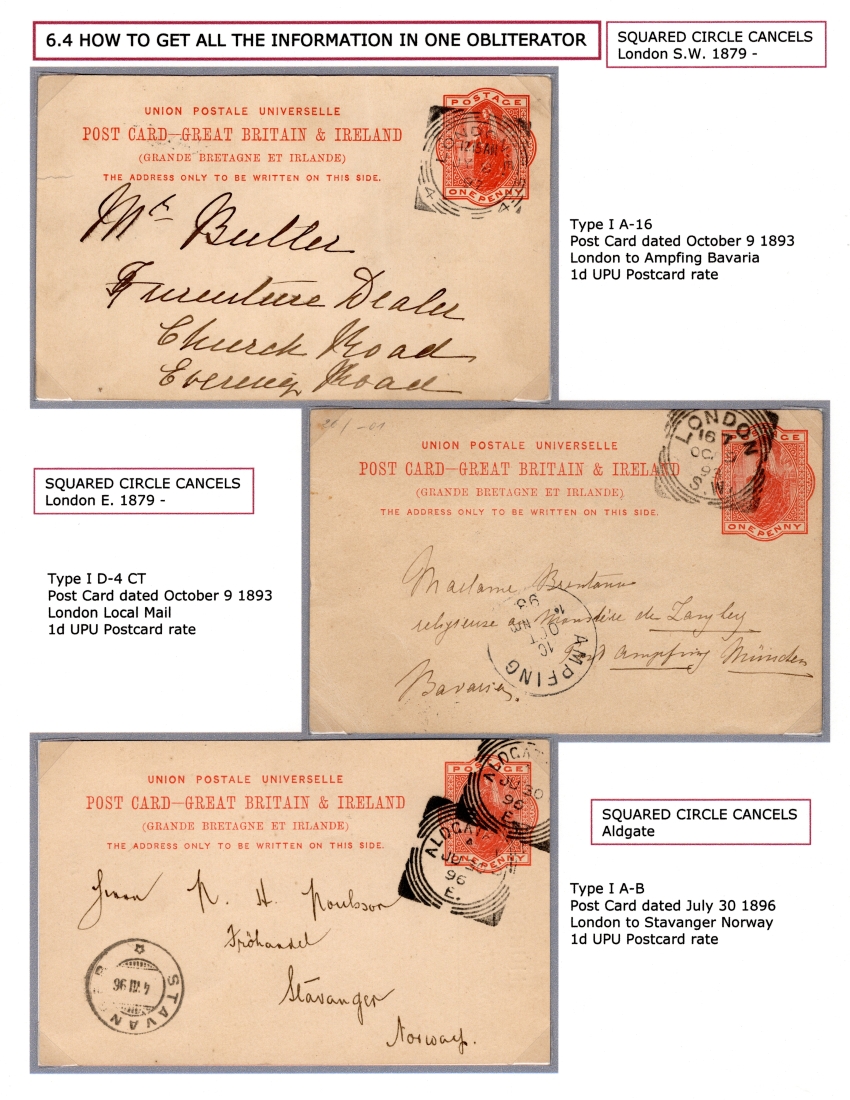 6.4 HOW TO GET ALL THE INFORMATION IN ONE OBLITERATOR
SQUARED CIRCLE CANCELS
London S.W. 1879 -
UNION POSTALE UNIVERSELLE
POST CARD—GREAT BRITAIN & IRELAND
(GRANDE BRETAGNE ET IRLANDE)
THE ADDRESS ONLY TO BE WRITTEN ON THIS SIDE.
POSTAGE
ONE PENNY
LONDON
Mr Butler
Furenture Dealer
Church Road
Evering Road
Type I A-16
Post Card dated October 9 1893
London to Ampfing Bavaria
1d UPU Postcard rate
UNION POSTALE UNIVERSELLE
POST CARD—GREAT BRITAIN & IRELAND
(GRANDE BRETAGNE ET IRLANDE)
THE ADDRESS ONLY TO BE WRITTEN ON THIS SIDE.
ONE PENNY
LONDON
16 7
OC 9
93
S.W.
Madame Brentano
religieuse de
Zangley
Post Ampfing München
Bavaria.
AMPFING
10
OCT
93
SQUARED CIRCLE CANCELS
London E. 1879 -
Type I D-4 CT
Post Card dated October 9 1893
London Local Mail
1d UPU Postcard rate
UNION POSTALE UNIVERSELLE
POST CARD—GREAT BRITAIN & IRELAND
(GRANDE BRETAGNE ET IRLANDE)
THE ADDRESS ONLY TO BE WRITTEN ON THIS SIDE.
POSTAGE
ONE PENNY
ALDGAT
JU 30
96
E.
ALDGATE
96
E.
Herrn N. H. Poulsson
Fröhandel
Stavanger
Norway.
STAVANGER
4 VIII 96
SQUARED CIRCLE CANCELS
Aldgate
Type I A-B
Post Card dated July 30 1896
London to Stavanger Norway
1d UPU Postcard rate